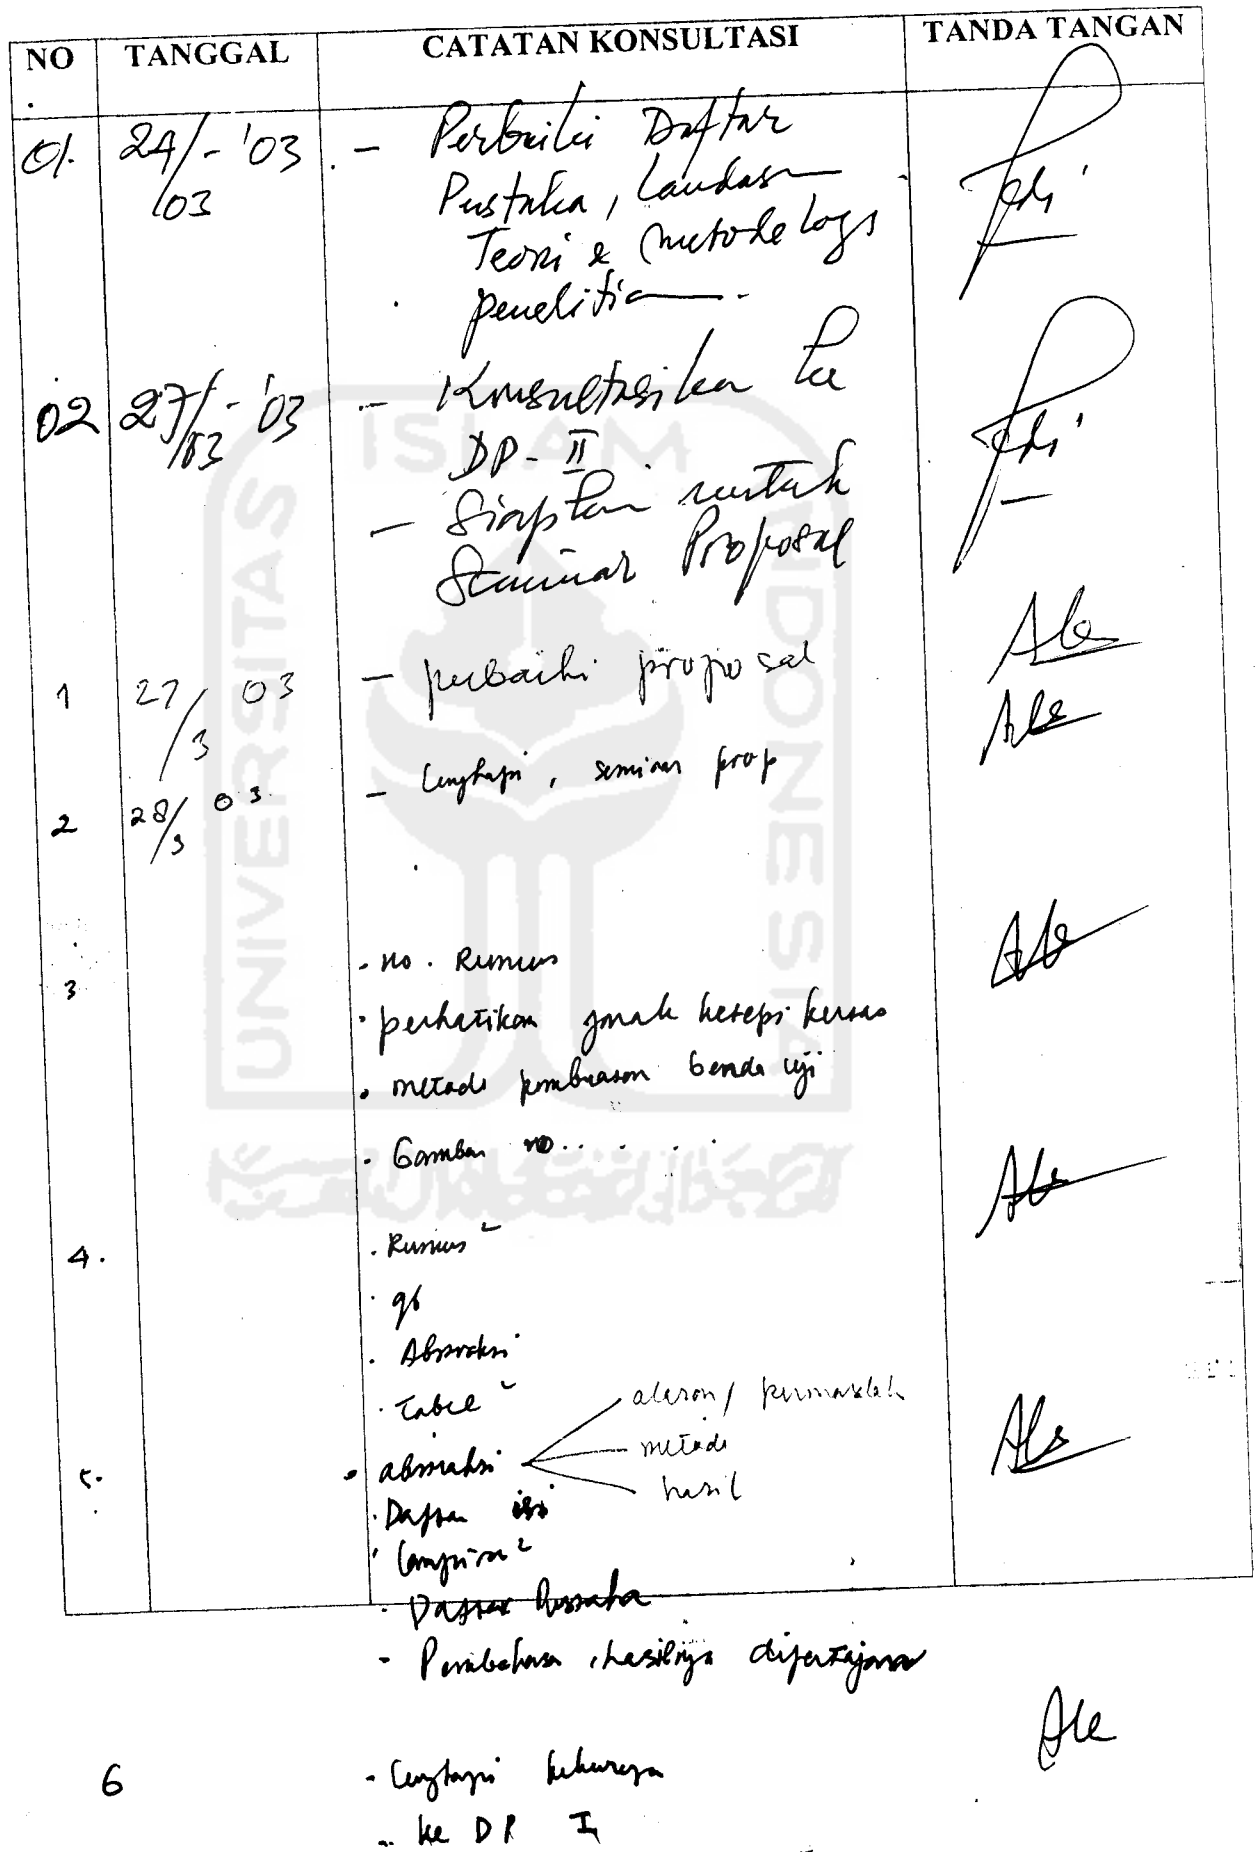 NO. TANGGAL CATATAN KONSULTASI TANDA TANGAN
01. 24/03-'03 - Perbaiki Daftar
Pustaka, Landasan
Teori & metodelogi
penelitian.
02 27/03-'03 - Konsultasikan ke
DP-II
- Siapkan untuk
Seminar Proposal
1 27/3 03 - perbaiki proposal
2 28/3 03 - lengkapi, seminar prop
3 - no. Rumus
. perhatikan jarak ketepi kertas
. metode pembuatan benda uji
. Gambar no......
4. . Rumus²
. gb
. Abstraksi
. Tabel²
5. . abstraksi alasan / permasalah
metode
hasil
. Daftar isi
. lampiran²
. Daftar Pustaka
- Pembahasan, hasilnya dipertajam
6 - lengkapi
- ke DP I
UNIVERSITAS ISLAM INDONESIA